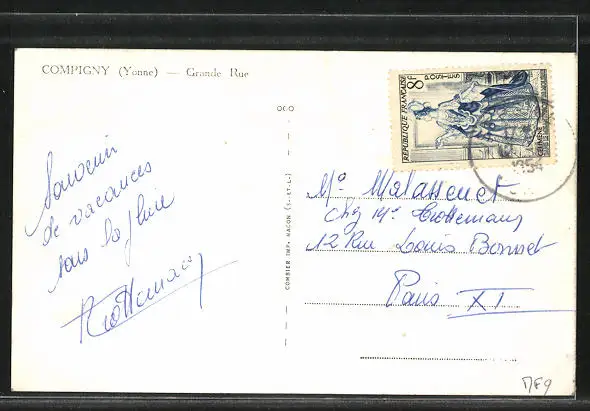 COMPIGNY (Yonne) — Grande Rue
Souvenir
de vacances
sous la pluie
COMBIER IMP. MACON (S.-ET-L.)
RÉPUBLIQUE FRANÇAISE
8F
POSTES
1954
Me Malassenet
Chez Me Trottemans
12 Rue Louis Bonnet
Paris XI
MF9